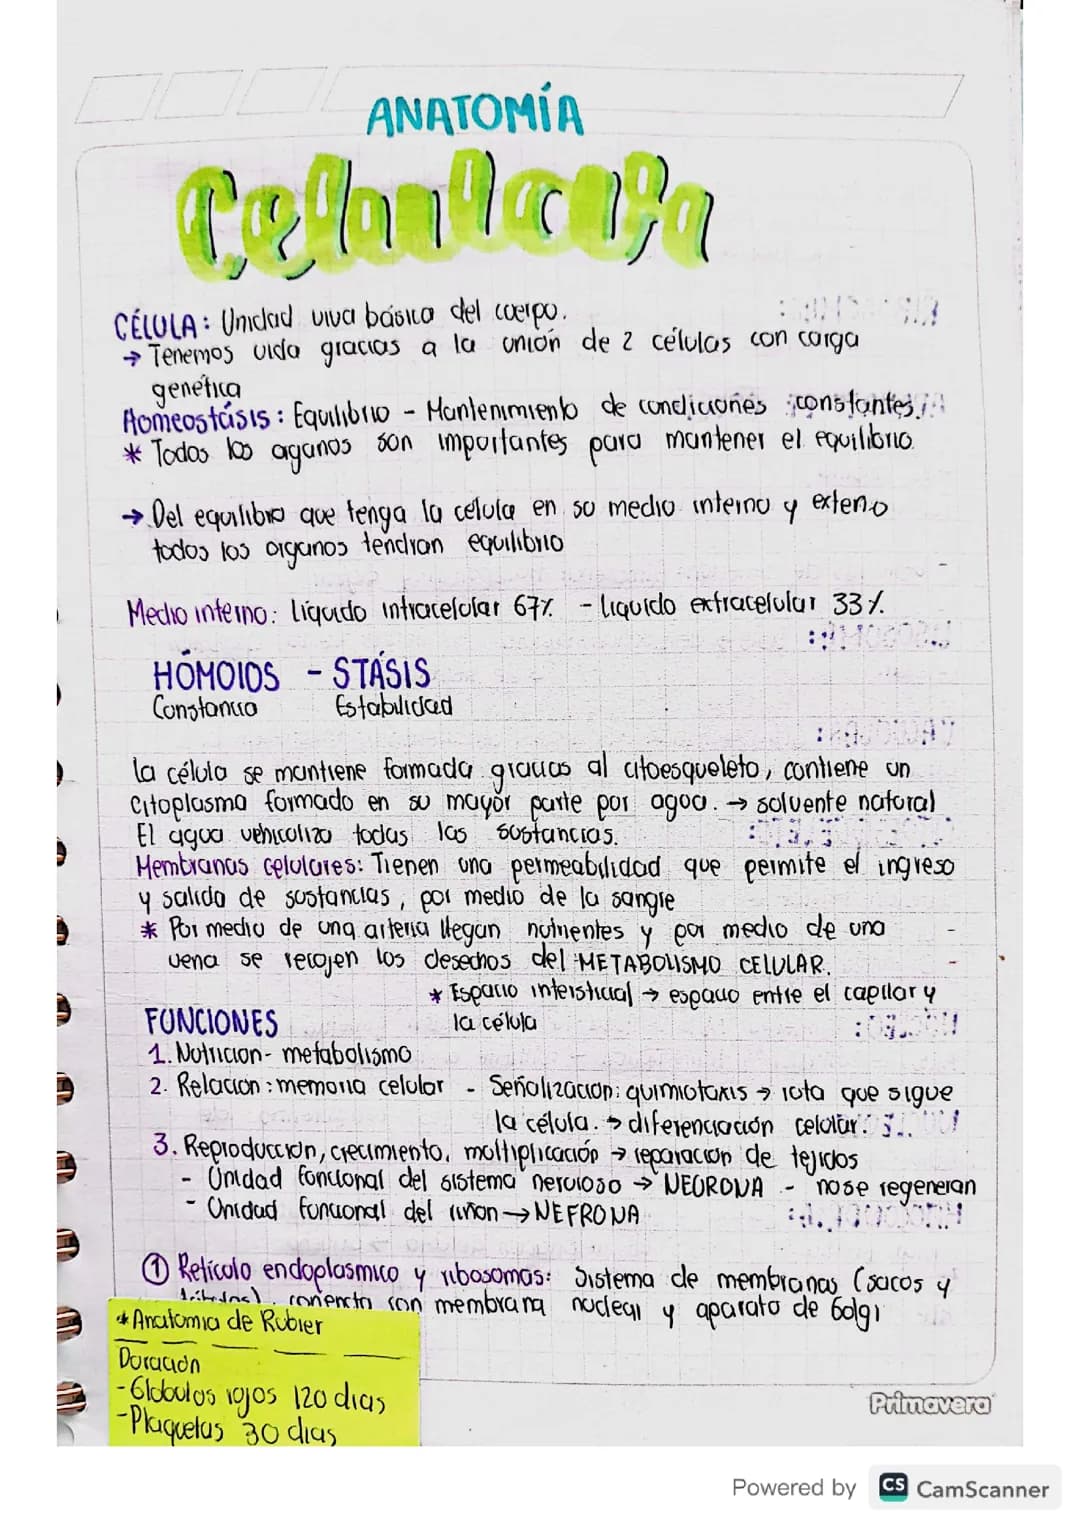 ANATOMÍA
Celular
CÉLULA: Unidad viva básica del cuerpo.
→ Tenemos vida gracias a la unión de 2 células con carga
genética
Homeostásis: Equilibrio - Mantenimiento de condiciones constantes.
* Todos los aganos son importantes para mantener el equilibrio.
→ Del equilibrio que tenga la celula en su medio interno y exteno
todos los organos tendran equilibrio
Medio interno: Líquido intracelular 67% - Liquido extracelular 33%.
HÓMOIOS - STÁSIS
Constancia Estabilidad
la célula se mantiene formada gracias al citoesqueleto, contiene un
Citoplasma formado en su mayor parte por agua. → solvente natural
El agua vehiculiza todas las sustancias.
Membranas celulares: Tienen una permeabilidad que permite el ingreso
y salida de sustancias, por medio de la sangre
* Por medio de una arteria llegan nutrientes y por medio de una
vena se recojen los desechos del METABOLISMO CELULAR.
* Espacio intersticial → espacio entre el capilar y
la célula
FUNCIONES
1. Nutricion - metabolismo
2. Relacion: memoria celular - Señalizacion: quimiotaxis → ruta que sigue
la célula. → diferenciación celular.
3. Reproduccion, crecimiento, multiplicación → reparacion de tejidos
- Unidad funcional del sistema nervioso → NEURONA - no se regeneran
- Unidad funcional del riñon → NEFRONA
① Retículo endoplasmico y ribosomas: Sistema de membranas (sacos y
túbulos), conencta con membrana nuclear y aparato de Golgi
* Anatomia de Rubier
Duración
- Glóbulos rojos 120 dias
- Plaquetas 30 dias
Primavera
Powered by CS CamScanner